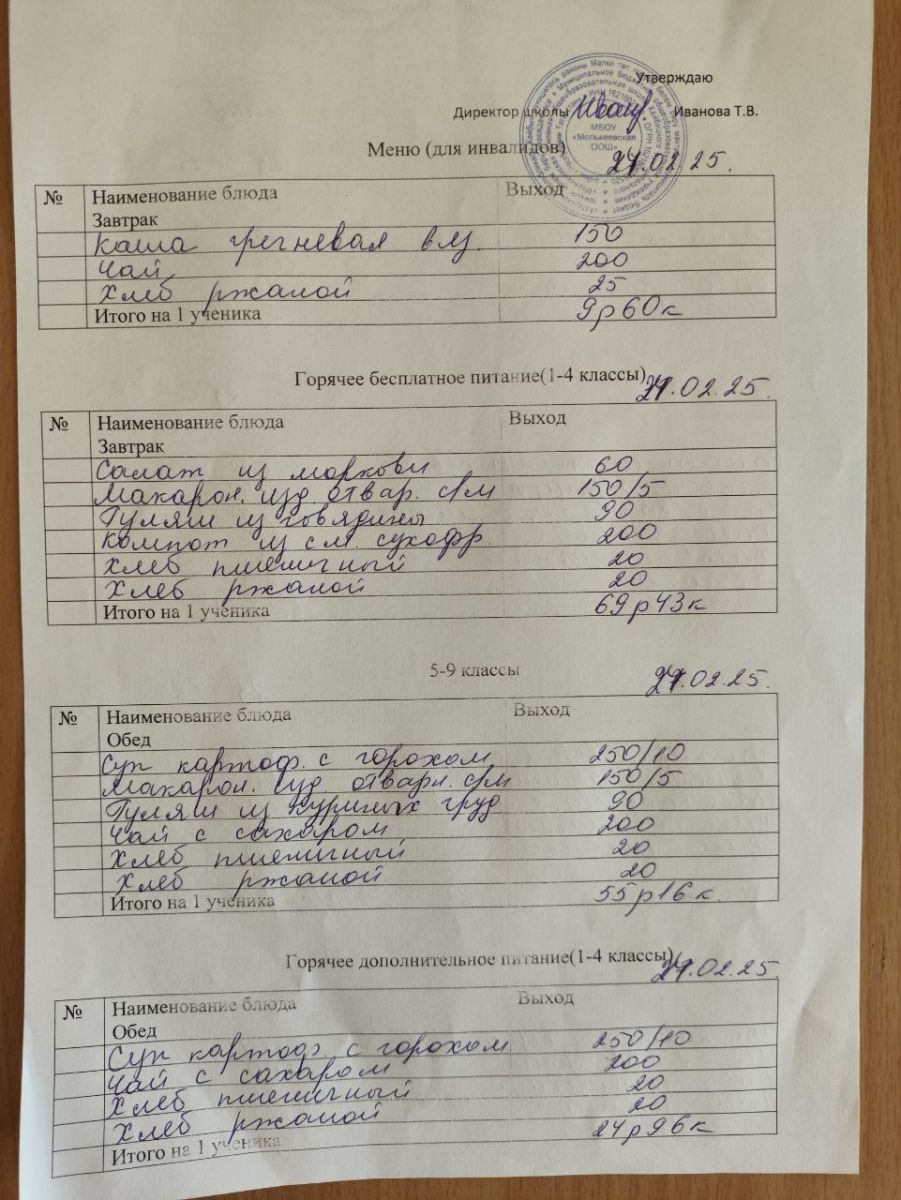 Утверждаю
Директор школы Иванова Т.В.
МБОУ
«Молькеевская
ООШ»
Меню (для инвалидов) .02.25.
№ Наименование блюда Выход
Завтрак
Каша гречневая вяз. 150
Чай 200
Хлеб ржаной 25
Итого на 1 ученика 9р60к
Горячее бесплатное питание(1-4 классы) .02.25.
№ Наименование блюда Выход
Завтрак
Салат из моркови 60
Макарон. изд отвар. с/м 150/5
Гуляш из говядины 90
Компот из см. сухофр. 200
Хлеб пшеничный 20
Хлеб ржаной 20
Итого на 1 ученика 69р43к
5-9 классы .02.25.
№ Наименование блюда Выход
Обед
Суп картоф. с горохом 250/10
Макарон. изд. отварн. с/м 150/5
Гуляш из куриных груд 90
Чай с сахаром 200
Хлеб пшеничный 20
Хлеб ржаной 20
Итого на 1 ученика 55р16к.
Горячее дополнительное питание(1-4 классы) .02.25.
№ Наименование блюда Выход
Обед
Суп картоф. с горохом 250/10
Чай с сахаром 200
Хлеб пшеничный 20
Хлеб ржаной 20
Итого на 1 ученика 24р96к